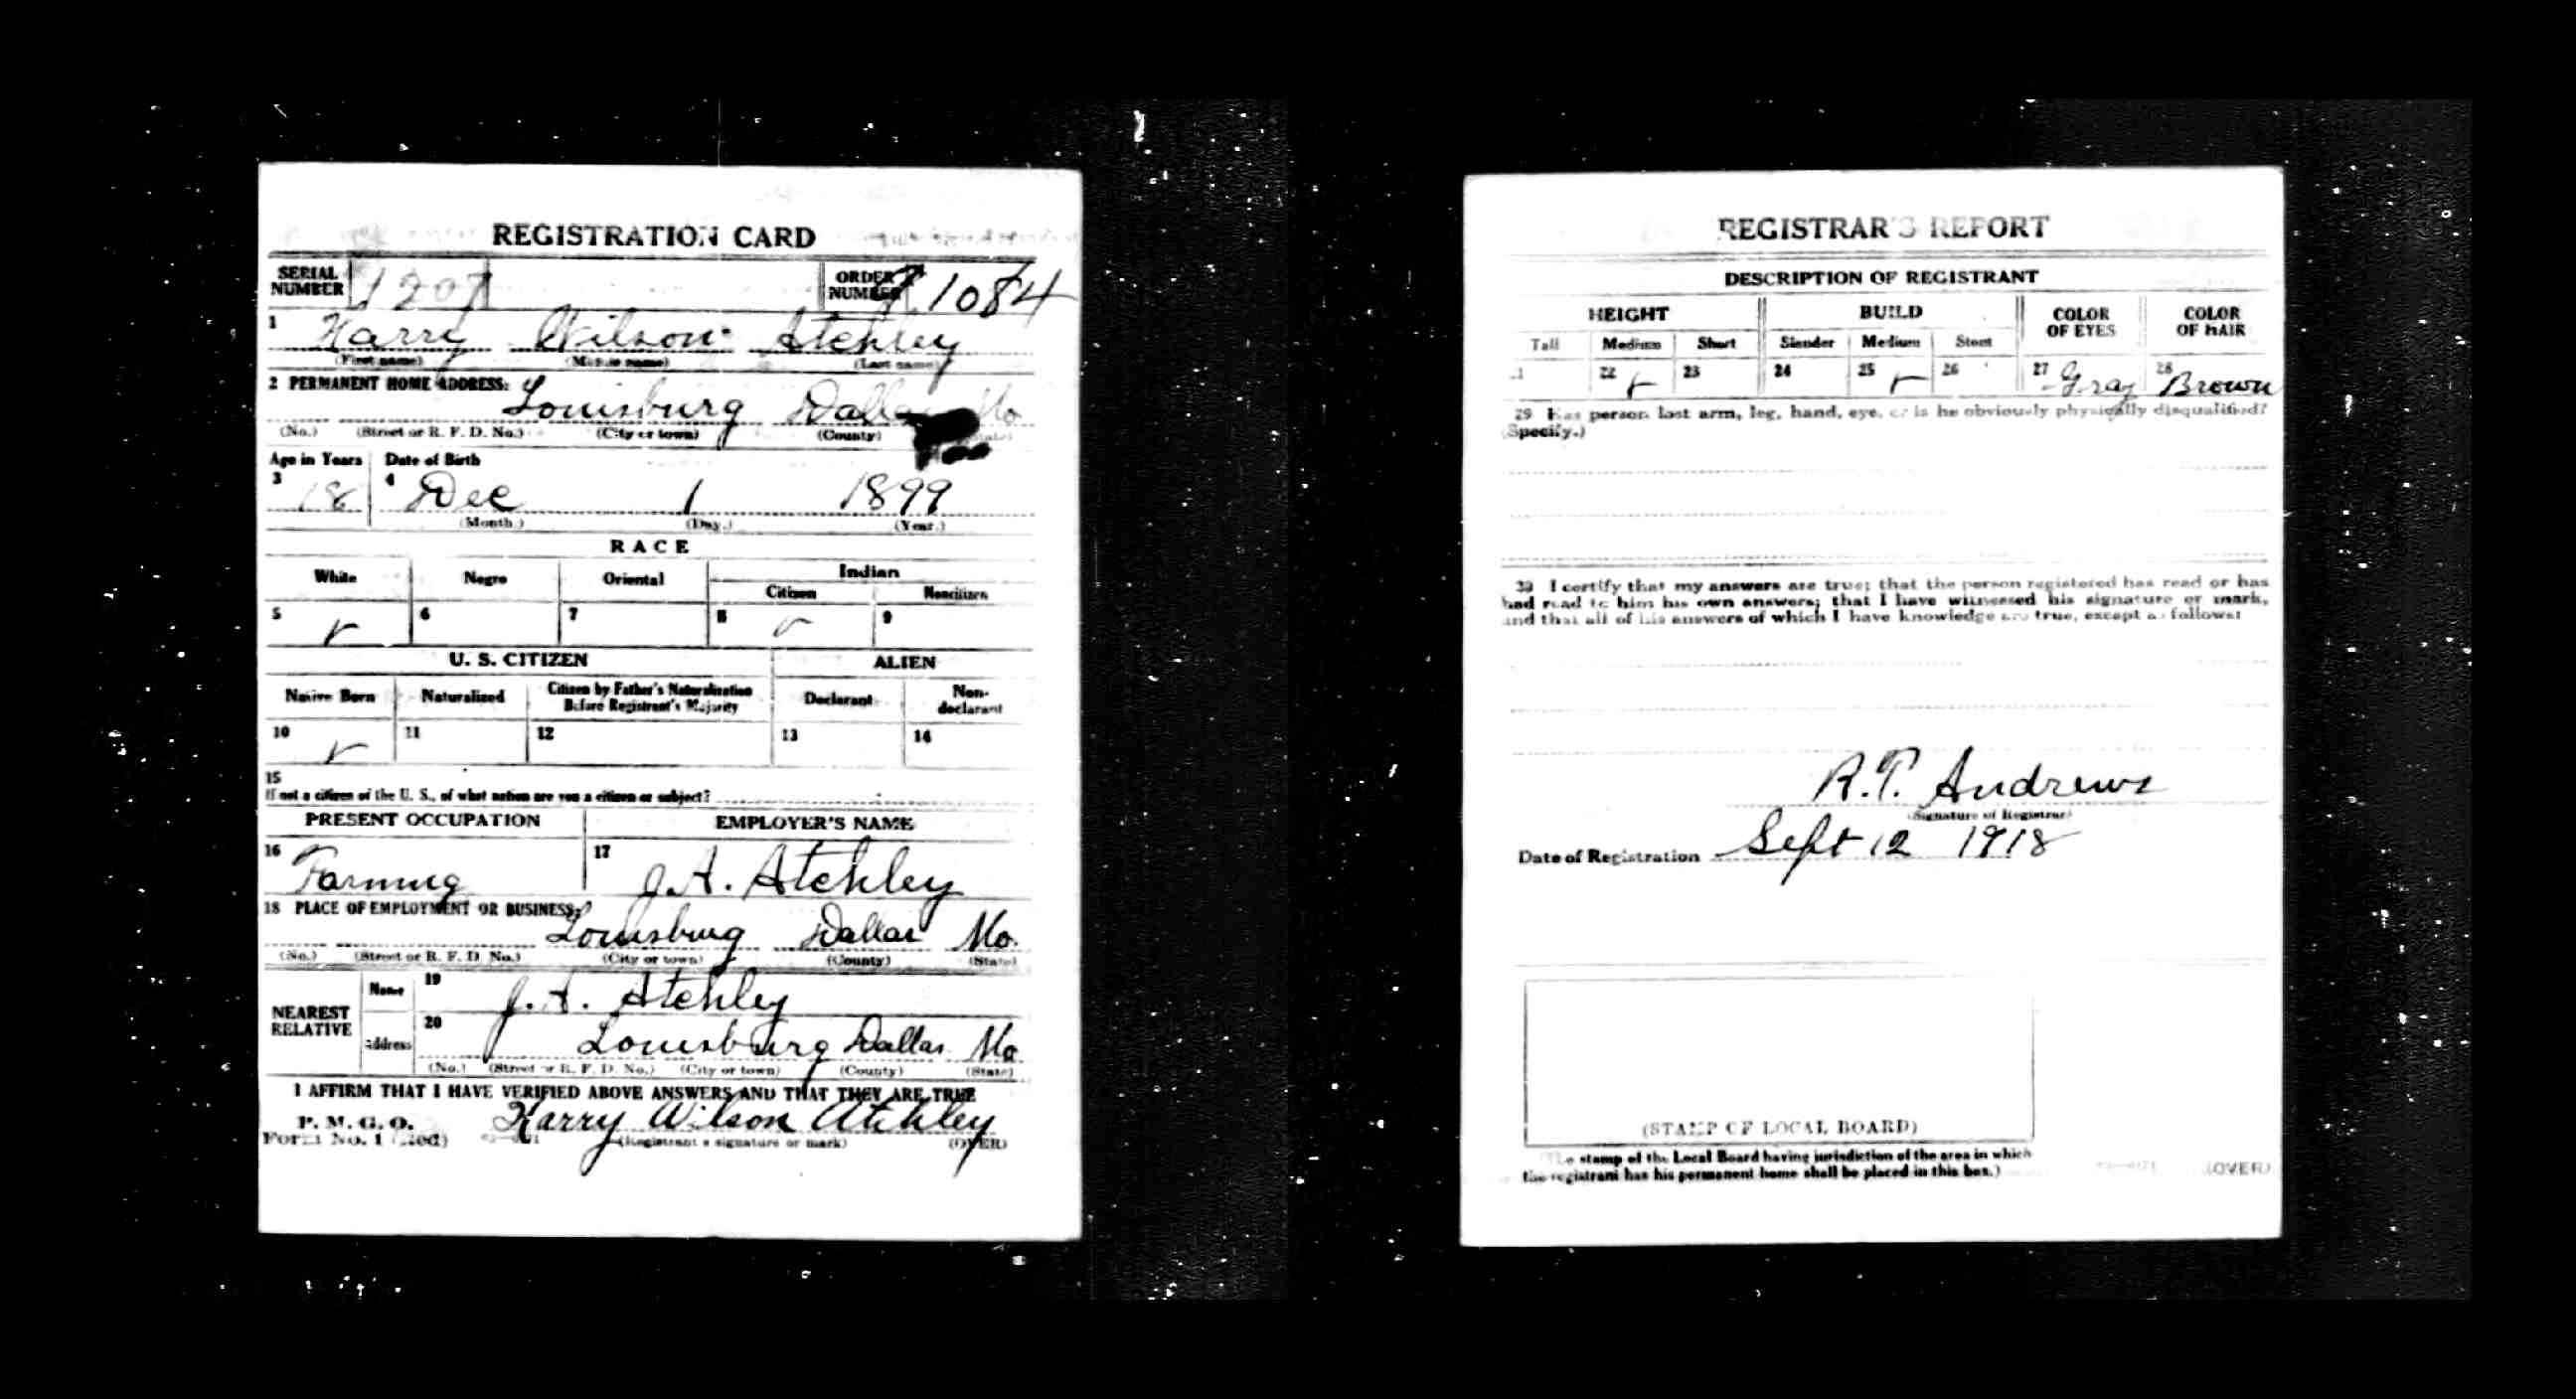 REGISTRATION CARD
SERIAL NUMBER 1207 ORDER NUMBER 1084
1 Harry Wilson Atchley
(First name) (Middle name) (Last name)
2 PERMANENT HOME ADDRESS:
Louisburg Dallas Mo
(No.) (Street or R. F. D. No.) (City or town) (County) (State)
Age in Years Date of Birth
3 18 4 Dec 1 1899
(Month.) (Day.) (Year.)
RACE
White Negro Oriental Indian
Citizen Noncitizen
5 6 7 8 9
U. S. CITIZEN ALIEN
Native Born Naturalized Citizen by Father's Naturalization Before Registrant's Majority Declarant Non-declarant
10 11 12 13 14
15
If not a citizen of the U. S., of what nation are you a citizen or subject?
PRESENT OCCUPATION EMPLOYER'S NAME
16 Farming 17 J.A. Atchley
18 PLACE OF EMPLOYMENT OR BUSINESS:
Louisburg Dallas Mo.
(No.) (Street or R. F. D. No.) (City or town) (County) (State)
NEAREST RELATIVE
Name 19 J.A. Atchley
Address 20 Louisburg Dallas Mo
(No.) (Street or R. F. D. No.) (City or town) (County) (State)
I AFFIRM THAT I HAVE VERIFIED ABOVE ANSWERS AND THAT THEY ARE TRUE
P. M. G. O.
Form No. 1 (Red) Harry Wilson Atchley
(Registrant's signature or mark) (OVER)
REGISTRAR'S REPORT
DESCRIPTION OF REGISTRANT
HEIGHT BUILD COLOR OF EYES COLOR OF HAIR
Tall Medium Short Slender Medium Stout
21 22 23 24 25 26 27 Gray 28 Brown
29 Has person lost arm, leg, hand, eye, or is he obviously physically disqualified?
(Specify.)
30 I certify that my answers are true; that the person registered has read or has
had read to him his own answers; that I have witnessed his signature or mark,
and that all of his answers of which I have knowledge are true, except as follows:
R.P. Andrews
(Signature of Registrar)
Date of Registration Sept 12 1918
(STAMP OF LOCAL BOARD)
(The stamp of the Local Board having jurisdiction of the area in which
the registrant has his permanent home shall be placed in this box.)
(OVER)